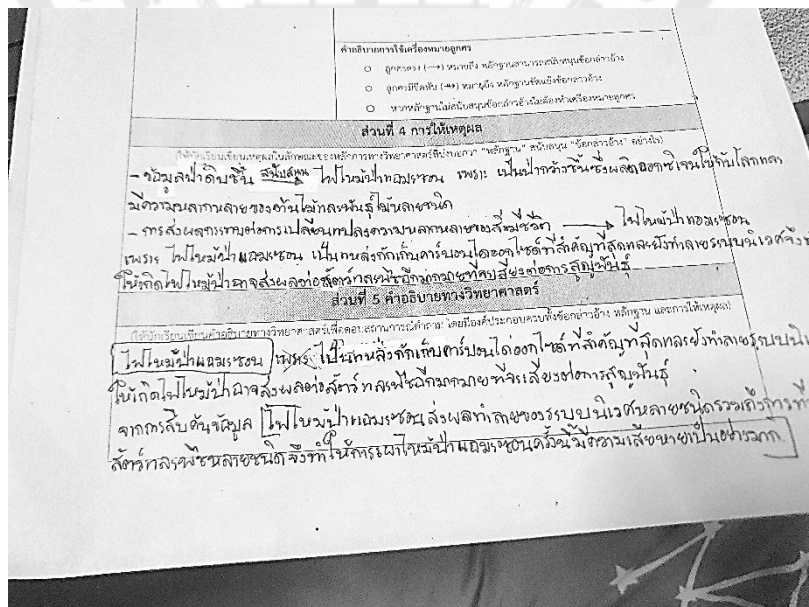 คำอธิบายการใช้เครื่องหมายลูกศร
ลูกศรตรง (→) หมายถึง หลักฐานสามารถสนับสนุนข้อกล่าวอ้าง
ลูกศรมีขีดทับ (↛) หมายถึง หลักฐานขัดแย้งข้อกล่าวอ้าง
หากหลักฐานไม่สนับสนุนข้อกล่าวอ้างไม่ต้องทำเครื่องหมายลูกศร
ส่วนที่ 4 การให้เหตุผล
(ให้นักเรียนเขียนเหตุผลในลักษณะของหลักการทางวิทยาศาสตร์ที่บ่งบอกว่า "หลักฐาน" สนับสนุน "ข้อกล่าวอ้าง" อย่างไร)
- ข้อมูลป่าดิบชื้น สนับสนุน → ไฟไหม้ป่าแอมะซอน เพราะ เป็นป่ากว้างขึ้นซึ่งผลิตออกซิเจนให้กับโลกและ
มีความหลากหลายของต้นไม้และพันธุ์ไม้หลายชนิด
- การส่งผลกระทบต่อการเปลี่ยนแปลงความหลากหลายของสิ่งมีชีวิต → ไฟไหม้ป่าแอมะซอน
เพราะ ไฟไหม้ป่าแอมะซอน เป็นแหล่งกักเก็บคาร์บอนไดออกไซด์ที่สำคัญที่สุดและยังทำลายระบบนิเวศจึง
ให้เกิดไฟไหม้ป่าอาจส่งผลต่อสัตว์และพืชอีกมากมายที่คงเสี่ยงต่อการสูญพันธุ์
ส่วนที่ 5 คำอธิบายทางวิทยาศาสตร์
(ให้นักเรียนเขียนคำอธิบายทางวิทยาศาสตร์เพื่อตอบสถานการณ์คำถาม โดยมีองค์ประกอบครบทั้งข้อกล่าวอ้าง หลักฐาน และการให้เหตุผล)
ไฟไหม้ป่าแอมะซอน เพราะ เป็นแหล่งกักเก็บคาร์บอนไดออกไซด์ที่สำคัญที่สุดและยังทำลายระบบนิเ
ให้เกิดไฟไหม้ป่าอาจส่งผลต่อสัตว์และพืชอีกมากมายที่จะเสี่ยงต่อการสูญพันธุ์
จากการสืบค้นข้อมูล ไฟไหม้ป่าแอมะซอนส่งผลทำลายของระบบนิเวศหลายชนิดรวมถึงการที่
สัตว์และพืชหลายชนิดจึงทำให้การเผาไหม้ป่าแอมะซอนครั้งนี้มีความเสียหายเป็นอย่างมาก